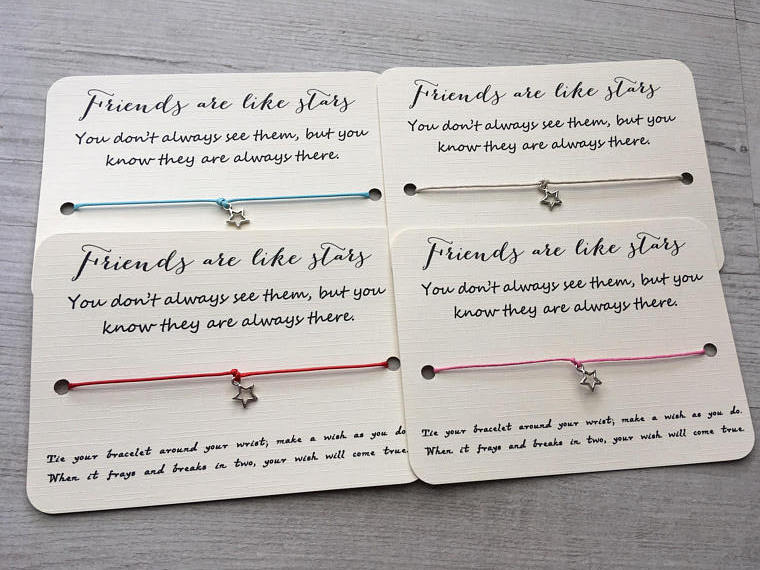 Friends are like stars
You don't always see them, but you
know they are always there.
Friends are like stars
You don't always see them, but you
know they are always there.
Friends are like stars
You don't always see them, but you
know they are always there.
Tie your bracelet around your wrist; make a wish as you do.
When it frays and breaks in two, your wish will come true.
Friends are like stars
You don't always see them, but you
know they are always there.
Tie your bracelet around your wrist; make a wish as you do.
When it frays and breaks in two, your wish will come true.